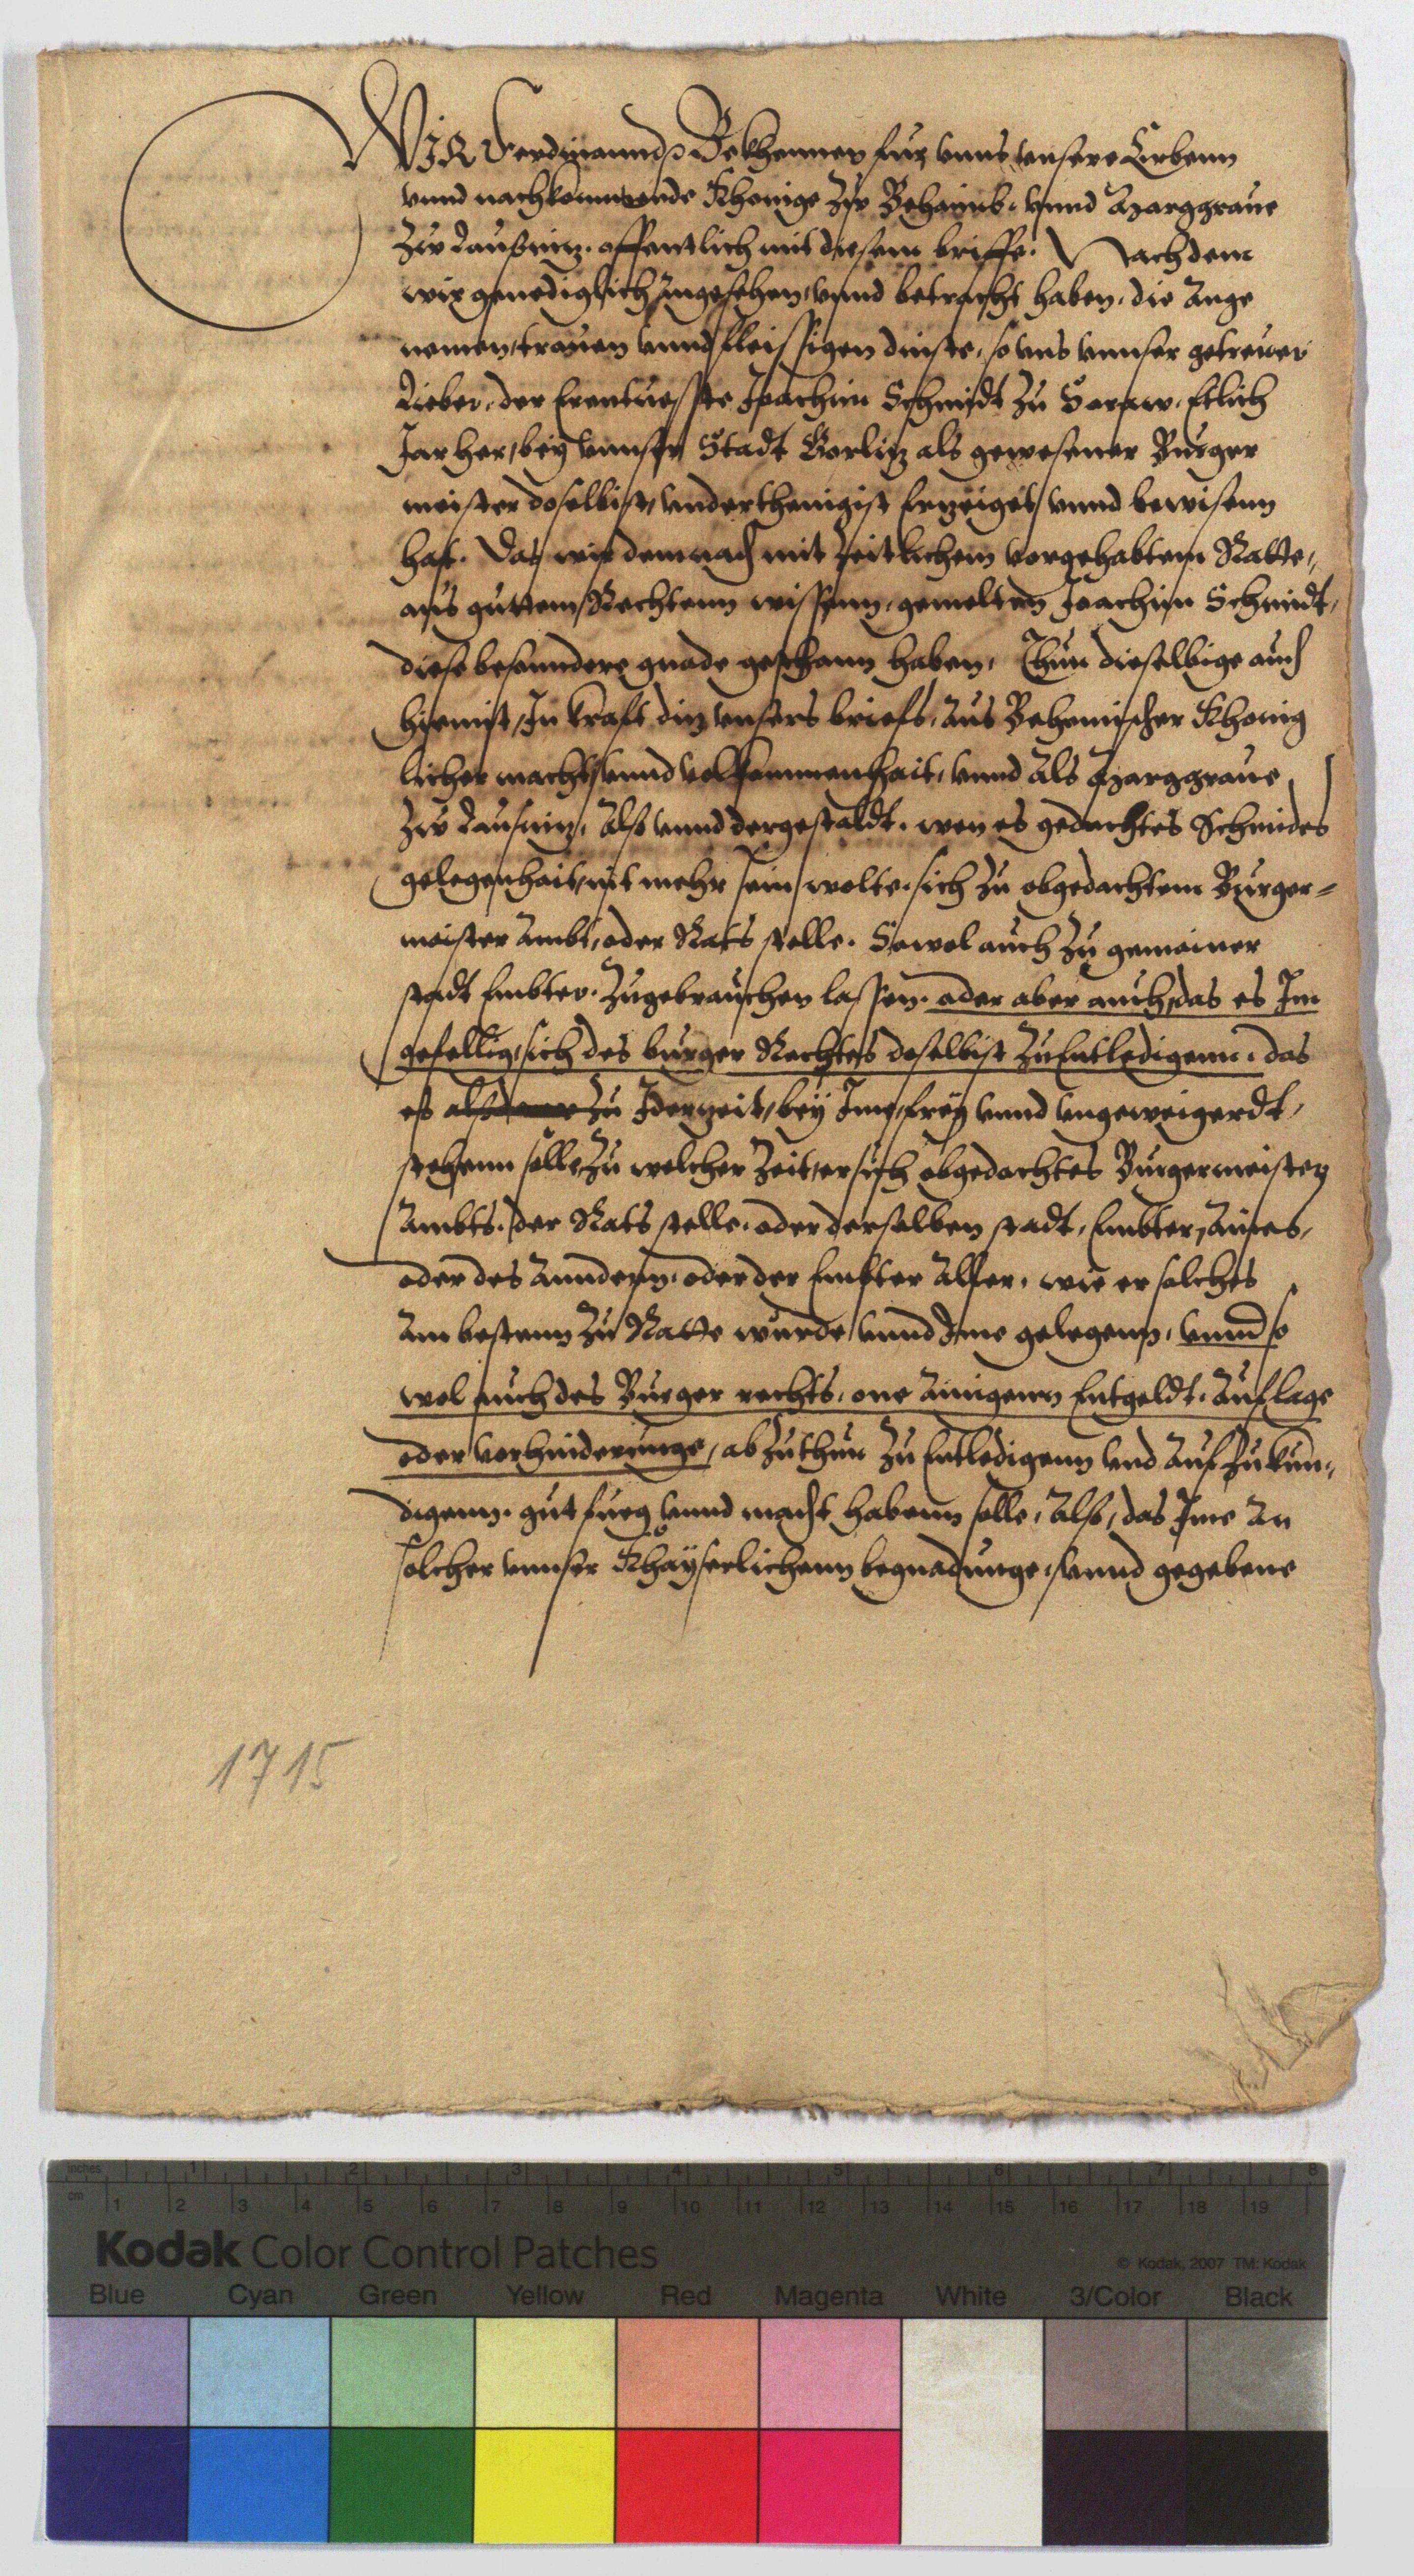 WIR Ferdinannd etc Bekhennen fur unns unsere Erbenn
vnnd nachkommende Khonige zw Behaimb. vnnd Marggraue
zw Laußnitz. offentlich mit diesem briffe. Nachdem
wir genediglich angesehen, vnnd betracht haben. die ange
nemen, trewen vnnd fleissigen dinste, so vns vnnser getrewer
Lieber, der Erentuesste Joachim Schmidt zu Soraw. Etlich
Jar her, bey vnnser Stadt Gorlitz als gewesener Burger
meister doselbist, vnderthenigist Erzeiget, vnnd bewisenn
hat. Das wir demnach mit zeitlichem vorgehabtem Ratte,
aus guttem, Rechtenn wissenn, gemelten Joachim Schmidt,
diese besundere gnade gethann haben, Thun dieselbige auch
hiemit, In krafft ditz vnsers briefs, aus Behemischer Khonig
licher macht, vnnd volkommenhait, vnnd als Marggraue
zw Lausnitz, Also vnnd dergestaldt. wen es gedachtes Schmides
gelegenhait, nit mehr sein wolte, sich zu obgedachtem Burger-
meister Ambt, oder Rats stelle. Sowol auch zu gemainer
stadt Embter. zugebrauchen lassen. oder aber auch, das es Im
gefellig, sich des burger Rechtes doselbist zu Entledigenn. das
es zu Iderzeit, bey Ime, frey vnnd vngeweigerdt,
stehenn solle, zu welcher zeit, er sich obgedachtes Burgermeister
Ambts. der Rats stelle. oder derselben stadt, Embter, aines,
oder des Anndern, oder der Embter aller. wie er solches
am bestenn zu Ratte wurde, vnnd Ime gelegenn, vnnd so
wol auch des Burger rechts, one ainigenn Entgeldt. Auflage
oder vorhinderunge, abzuthun zu Entledigenn vnd auf zu kun-
digenn. gut fueg vnnd macht habenn solle, Also, das Ime an
solcher vnnser Khayserlichenn begnadunge, vnnd gegebene
1715
inches 1 2 3 4 5 6 7 8
cm 1 2 3 4 5 6 7 8 9 10 11 12 13 14 15 16 17 18 19
Kodak Color Control Patches © Kodak, 2007 TM: Kodak
Blue Cyan Green Yellow Red Magenta White 3/Color Black